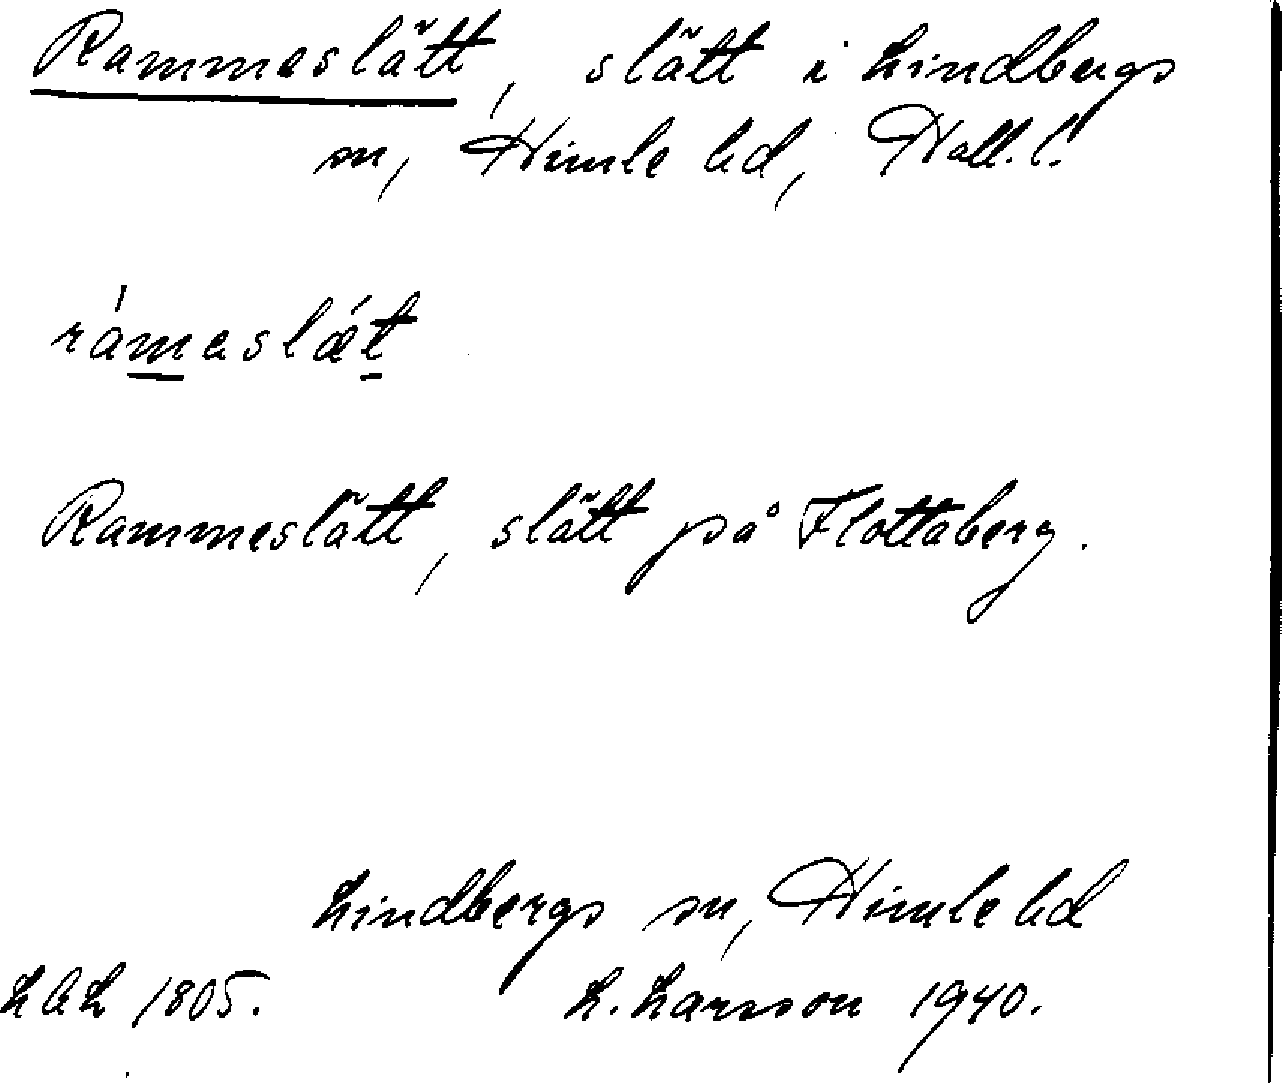 Rammeslätt, slätt i Lindbergs
sn, Himle hd, Hall. l.
rámeslǽt
Rammeslätt, slätt på Flottaberg.
Lindbergs sn, Himle hd
LAL 1805. L. Larsson 1940.